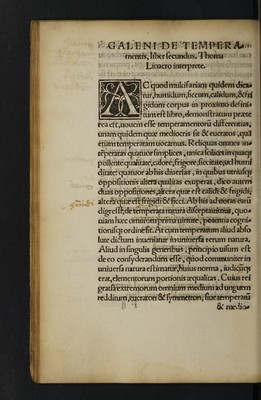 GALENI DE TEMPERA
mentis, liber secundus, Thoma
Linacro interprete.
AC quod multifariam quidem dica
tur, humidum, siccum, calidum, & fri
gidum corpus in proximo defini
tum est libro, demonstratum præte
rea est, nouem esse temperamentorū differentias,
unam quidem quæ mediocris sit & eucratos, quā
etiam temperatam uocamus. Reliquas omneis in
temperatas quatuor simplices, unica scilicet in quaq;
pollente qualitate, calore, frigore, siccitate, aut humi
ditate: quatuor ab his diuersas, in quibus
oppositionis altera qualitas exuperat, dico autem
duas oppositiones, altera quæ est calidi & frigidi,
altera quæ est frigidi & sicci. Ab his ad notas earū
digressi, de temperata natura disceptauimus, quo-
niam hæc omnium prima uirtute, potentia cogni-
tionisq; ordine sit. At cum temperatum aliud abso
lute dictum inueniatur in uniuersa rerum natura,
Aliud in singulis generibus, principio uisum est
de eo considerandum esse, quod communiter in
uniuersa natura estimatur, huius norma, iudicijq;
erat, elementorum portionis æqualitas. Cuius rei
gratia extremorum omnium medium ad unguem
redditum, eucraton & symmetron, siue temperatū
& medio